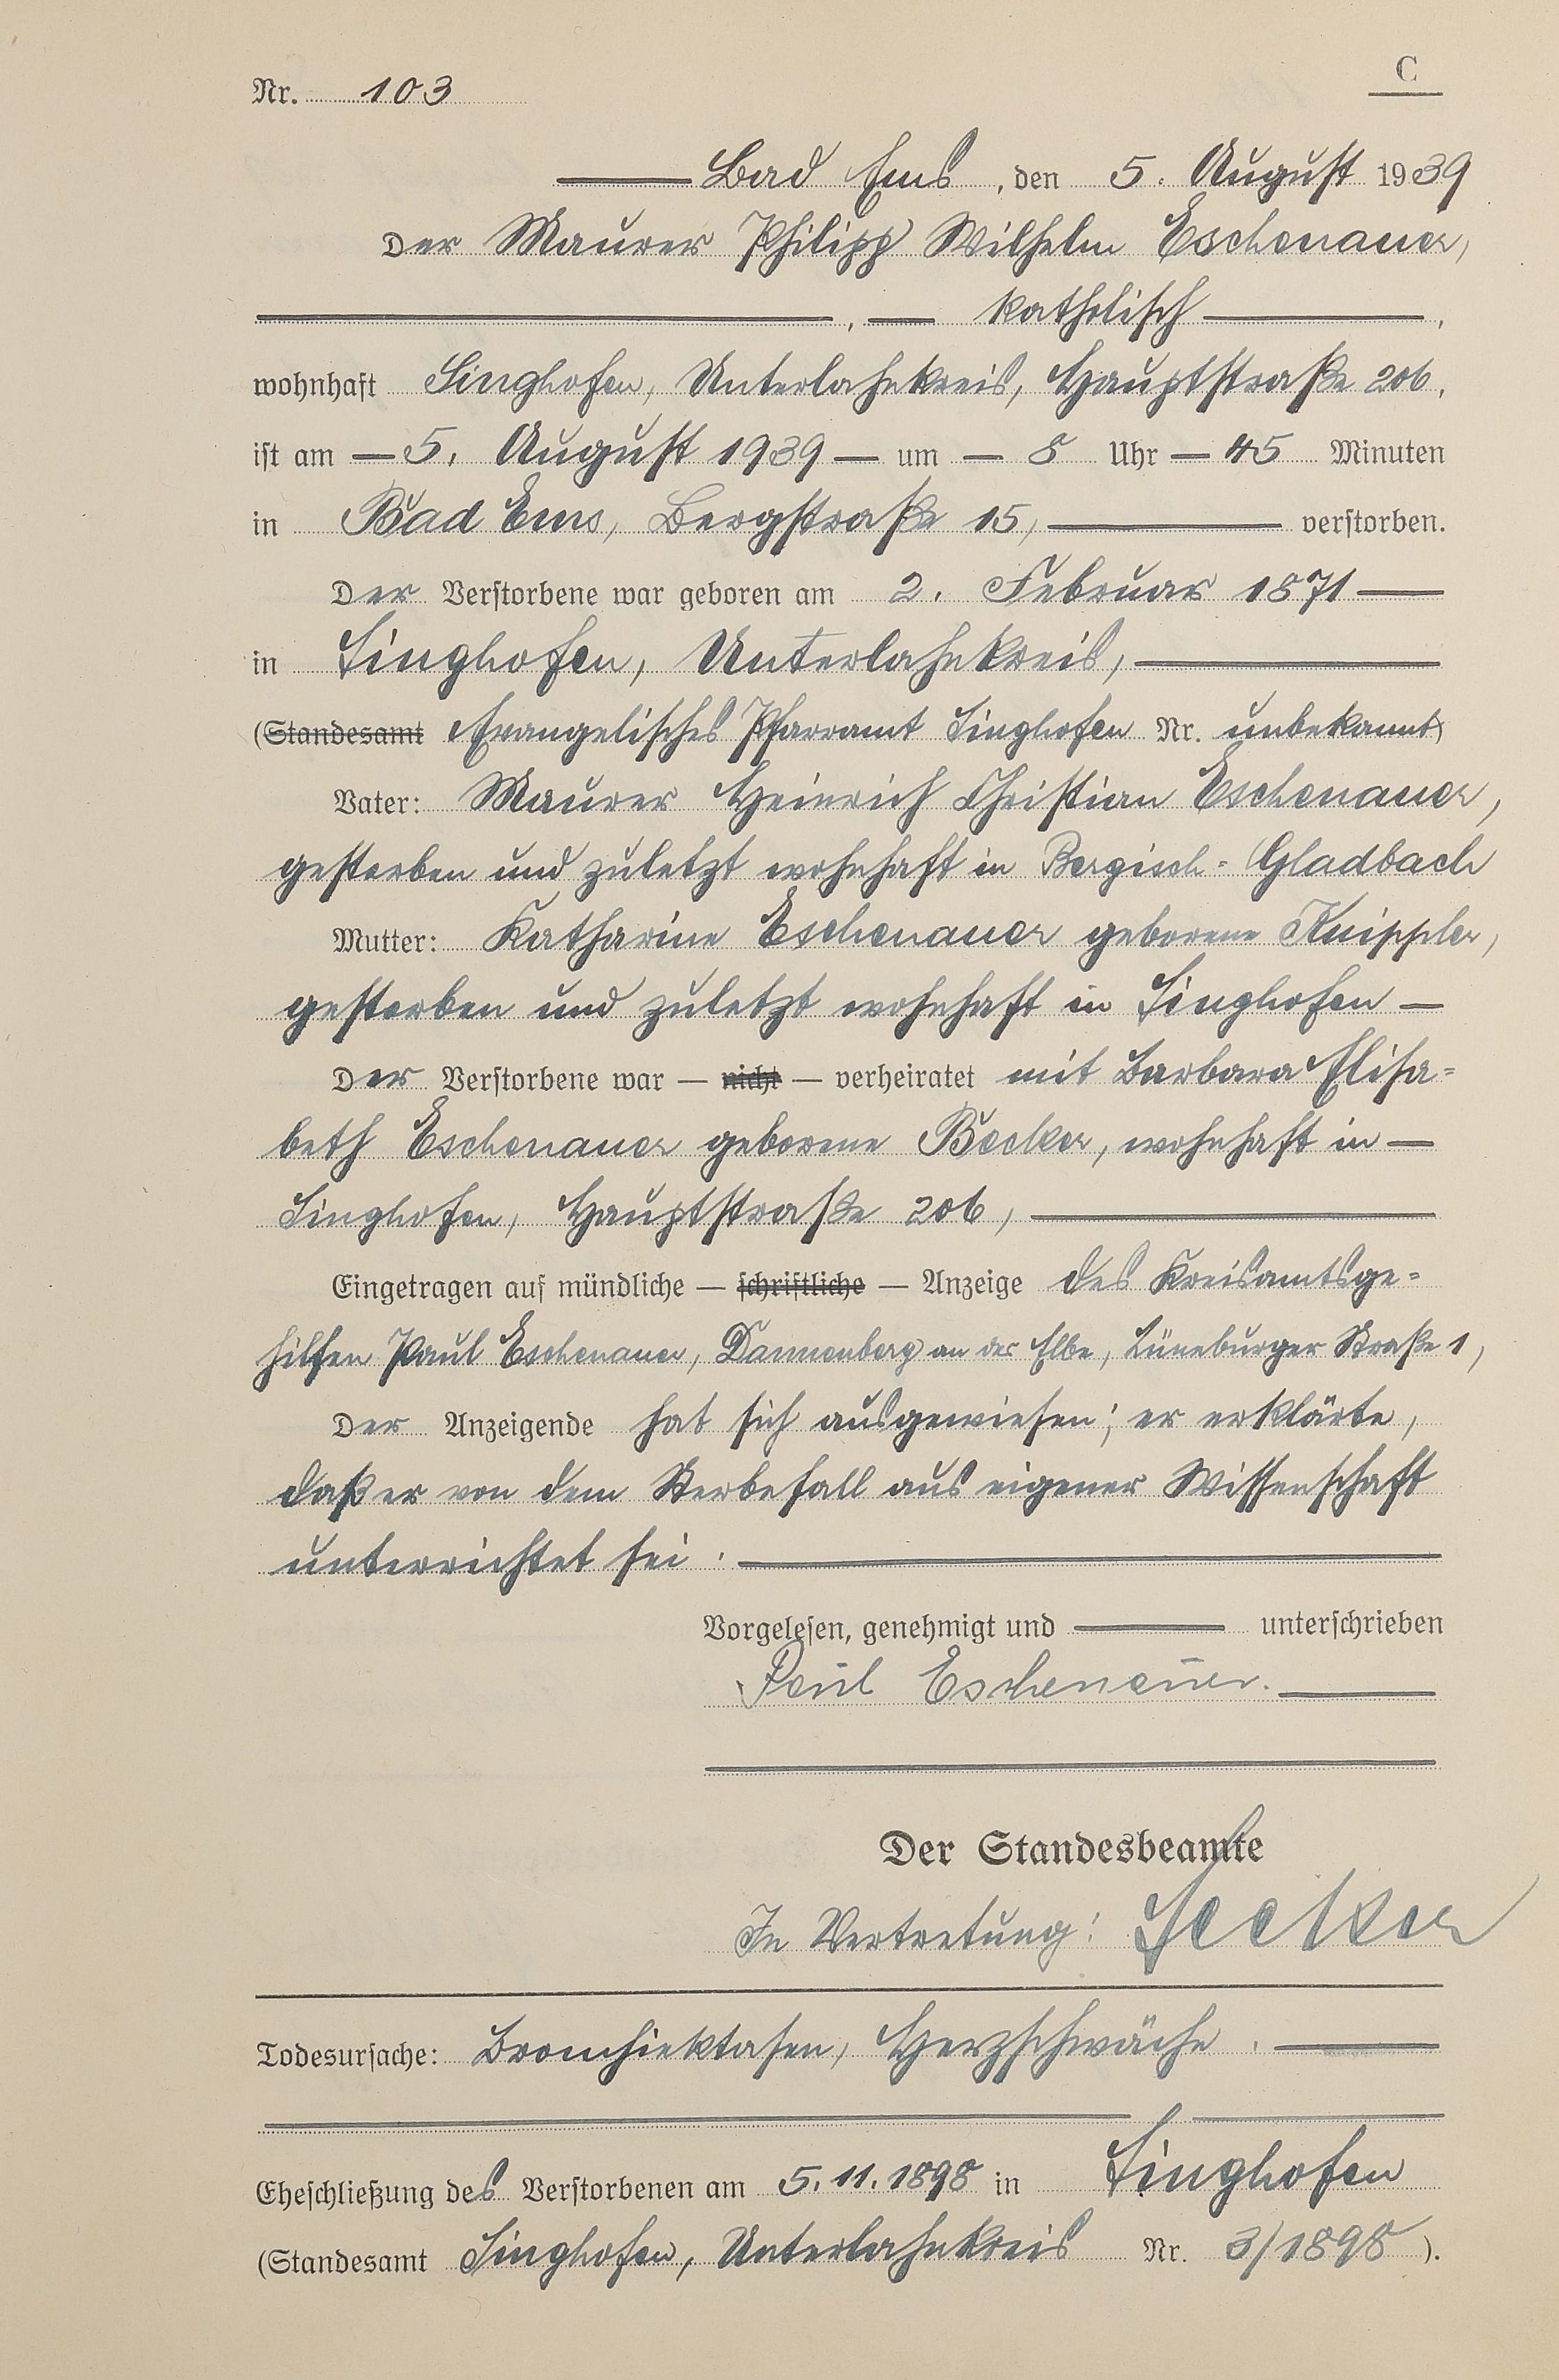 Nr. 103
C
Bad Ems, den 5. August 1939
Der Maurer Philipp Wilhelm Eschenauer,
, — katholisch —,
wohnhaft Singhofen, Unterlahnkreis, Hauptstraße 206,
ist am — 5. August 1939 — um — 8 Uhr — 45 Minuten
in Bad Ems, Bergstraße 15, — verstorben.
Der Verstorbene war geboren am 2. Februar 1871 —
in Singhofen, Unterlahnkreis, —
(Standesamt Evangelisches Pfarramt Singhofen Nr. unbekannt)
Vater: Maurer Heinrich Christian Eschenauer,
gestorben und zuletzt wohnhaft in Bergisch-Gladbach
Mutter: Katharine Eschenauer geborene Knippler,
gestorben und zuletzt wohnhaft in Singhofen —
Der Verstorbene war — nicht — verheiratet mit Barbara Elisa=
beth Eschenauer geborene Becker, wohnhaft in —
Singhofen, Hauptstraße 206, —
Eingetragen auf mündliche — schriftliche — Anzeige des Kreisamtsge=
hilfen Paul Eschenauer, Dannenberg an der Elbe, Lüneburger Straße 1,
Der Anzeigende hat sich ausgewiesen; er erklärte,
daß er von dem Sterbefall aus eigener Wissenschaft
unterrichtet sei. —
Vorgelesen, genehmigt und — unterschrieben
Paul Eschenauer. —
Der Standesbeamte
In Vertretung:
Todesursache: Bronchiektasen, Herzschwäche. —
Eheschließung des Verstorbenen am 5.11.1898 in Singhofen
(Standesamt Singhofen, Unterlahnkreis Nr. 3/1898).